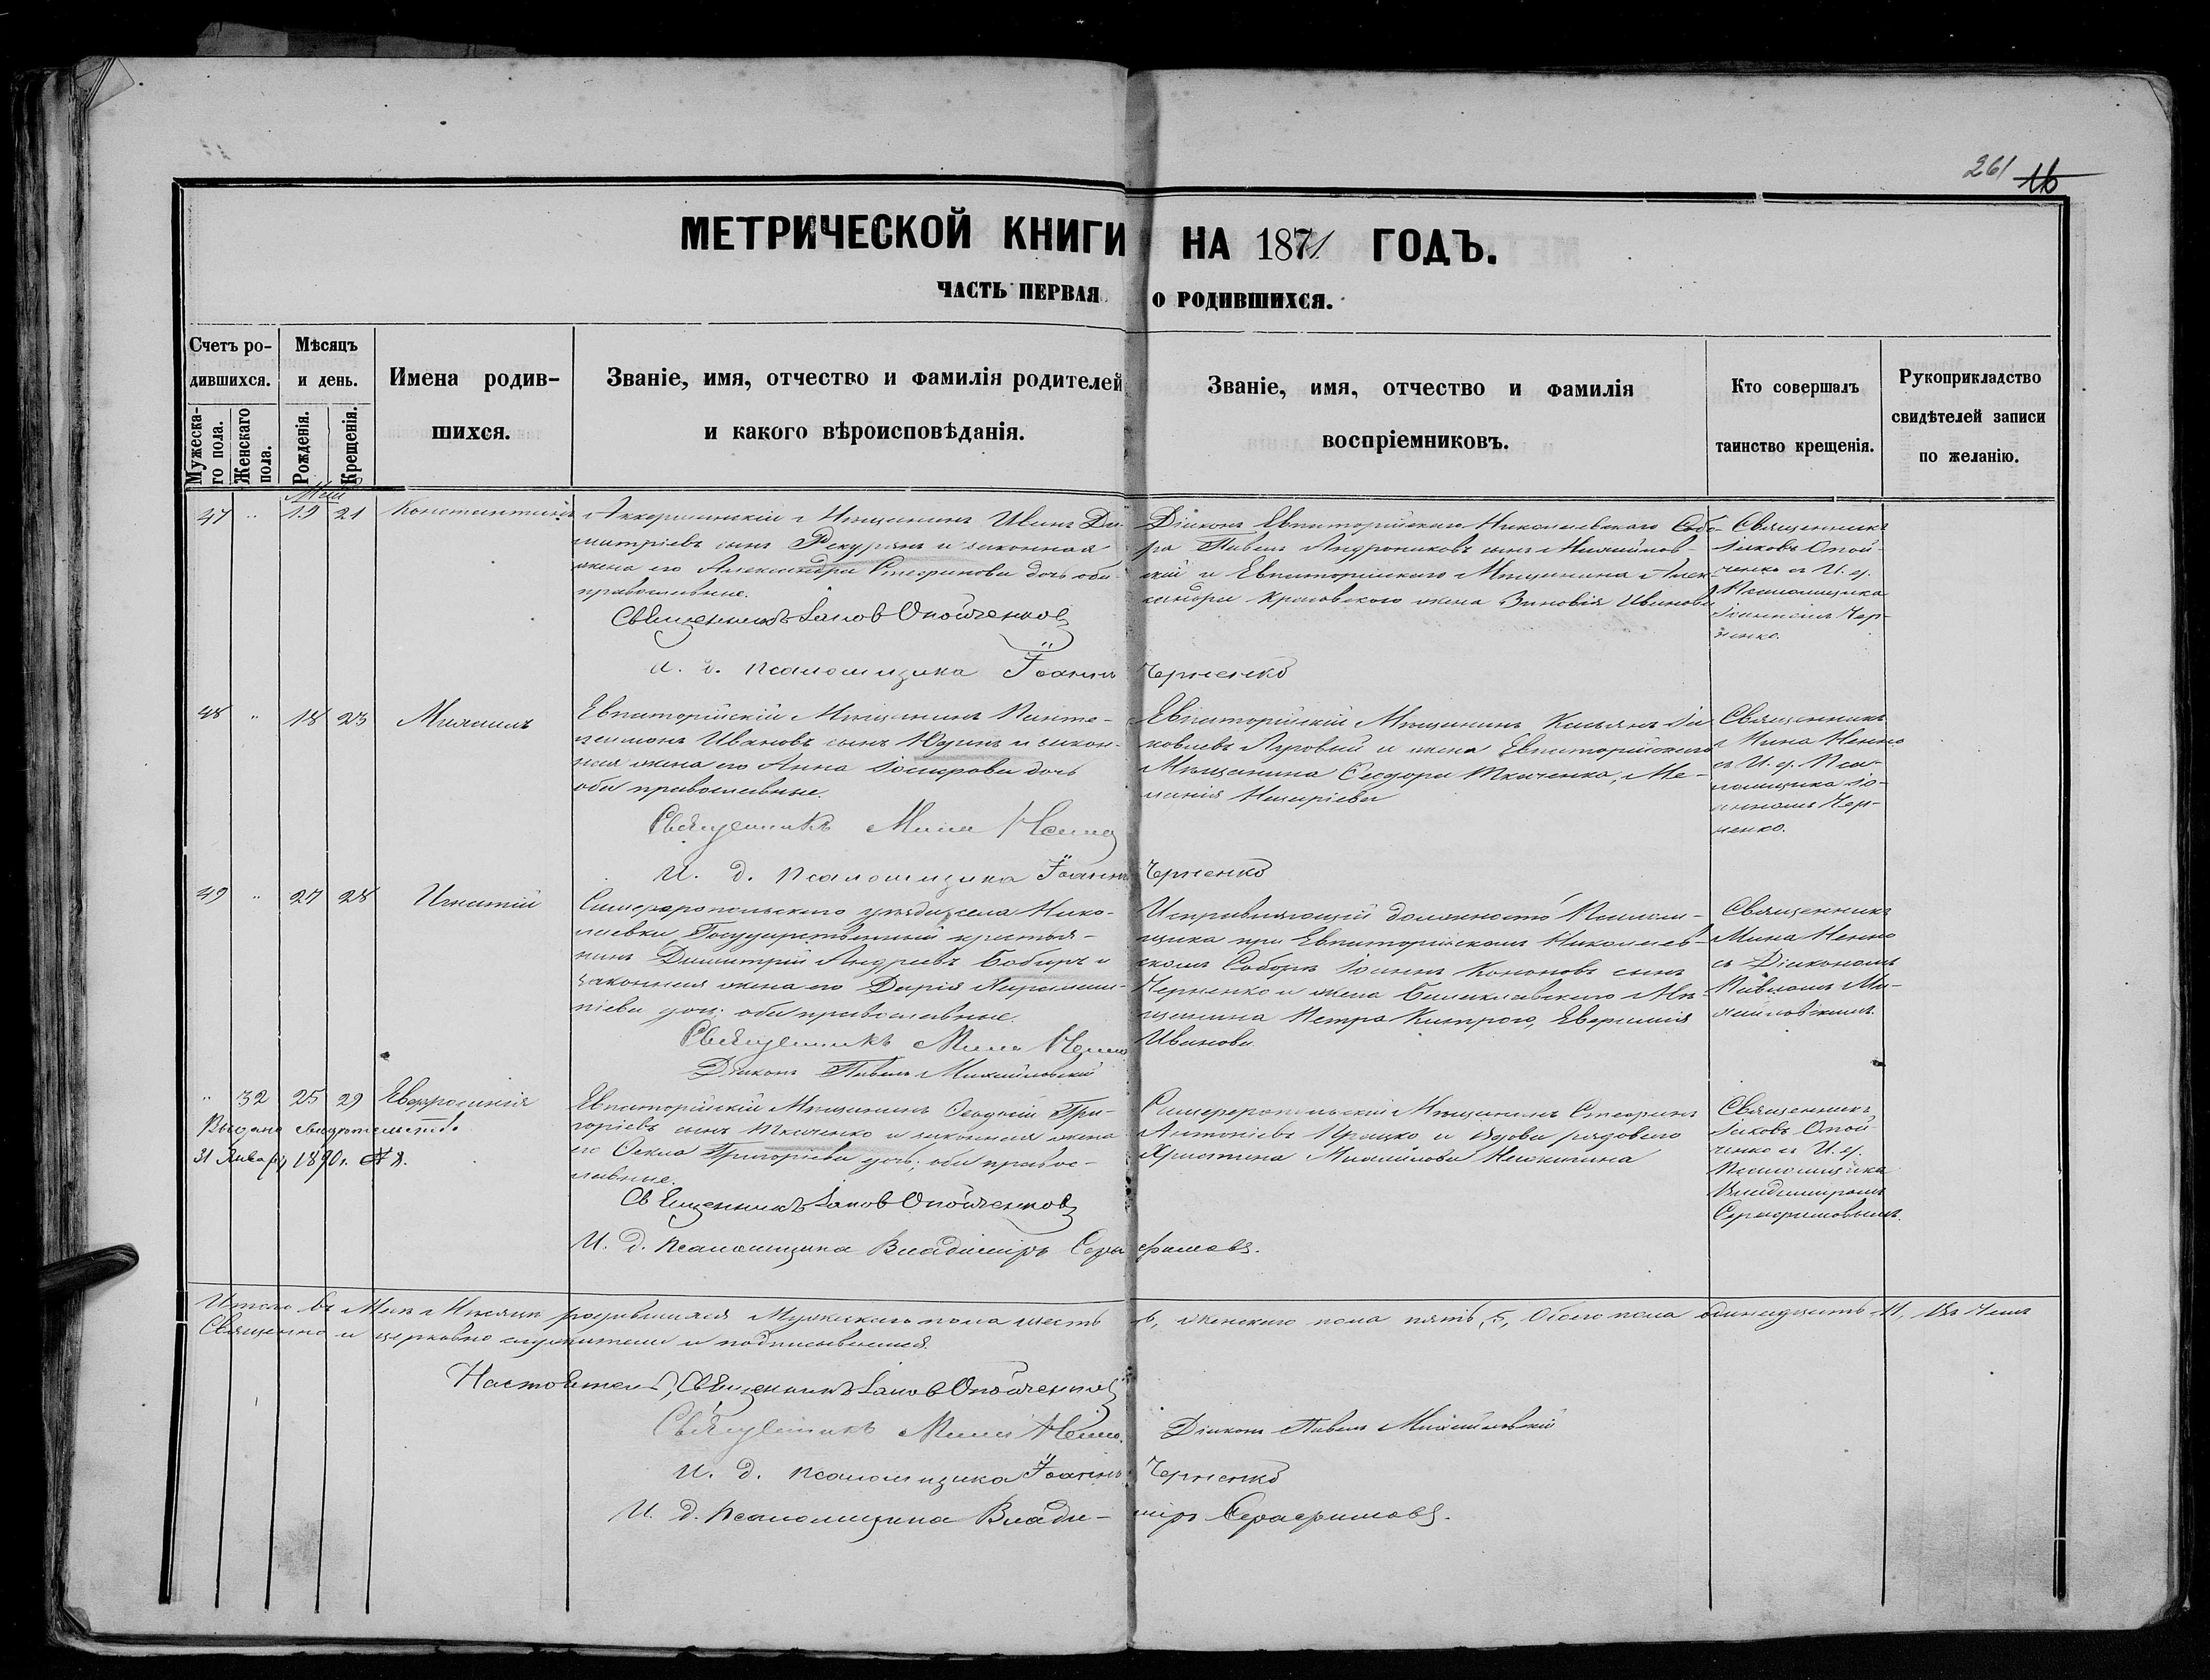 261 16
МЕТРИЧЕСКОЙ КНИГИ НА 1871 ГОДЪ.
ЧАСТЬ ПЕРВАЯ О РОДИВШИХСЯ.
Счетъ ро-
дившихся.
Мужеска-
го пола.
Женскаго
пола.
Мѣсяцъ
и день.
Рожденія.
Крещенія.
Имена родив-
шихся.
Званіе, имя, отчество и фамилія родителей
и какого вѣроисповѣданія.
Званіе, имя, отчество и фамилія
воспріемниковъ.
Кто совершалъ
таинство крещенія.
Рукоприкладство
свидѣтелей записи
по желанію.
Маи
47 " 19 21 Константинъ
Аккерманскій Мѣщанинъ Иванъ Ди-
митріевъ сынъ и законная
жена его Александра Стефанова дочь оба
православные.
Священникъ Іаковъ Опойченковъ
И. д. псаломщика Іоаннъ Черненко
Діаконъ Евпаторійскаго Николаевскаго Собо-
ра Павелъ Андрониковъ сынъ Михайлов-
скій и Евпаторійскаго Мѣщанина Алек-
сандра Красовскаго жена Зиновія Иванова
Священникъ
Іаковъ Опой-
ченко съ И. д.
Псаломщика
Іоанномъ Чер-
ненко.
48 " 18 23 Михаилъ
Евпаторійскій Мѣщанинъ Панте-
леимонъ Ивановъ сынъ Юдинъ и закон-
ная жена его Анна Іосифова дочь
оба православные.
Священникъ Мина Ненно
И. д. псаломщика Іоаннъ Черненко
Евпаторійскій Мѣщанинъ Касьянъ Іа-
ковлевъ Луговый и жена Евпаторійскаго
Мѣщанина Ѳеодора Ткаченко, Ме-
ланія
Священникъ
Мина Ненно
съ И. д. Пса-
ломщика Іо-
анномъ Чер-
ненко.
49 " 27 28 Игнатій
Симферопольскаго уѣзда, села Нико-
лаевки Государственный крестья-
нинъ Димитрій Андреевъ Бобырь и
законная жена его Дарія
дочь; оба православные.
Священникъ Мина Ненно
Діаконъ Павелъ Михайловскій
Исправляющій должность Псалом-
щика при Евпаторійскомъ Николаев-
скомъ Соборѣ Іоаннъ Кононовъ сынъ
Черненко и жена Балаклавскаго Мѣ-
щанина Петра Евфимія
Иванова.
Священникъ
Мина Ненно
съ Діакономъ
Павломъ Ми-
хайловскимъ.
" 32 25 29 Евфросинія
Выдано свидѣтельство
31 Января 1890 г. № 8.
Евпаторійскій Мѣщанинъ Ѳеодосій Гри-
горіевъ сынъ Ткаченко и законная жена
его Ѳекла Григоріева дочь; оба правос-
лавные.
Священникъ Іаковъ Опойченковъ
И. д. псаломщика Владиміръ Серафимовъ.
Симферопольскій Мѣщанинъ Стефанъ
Антоніевъ и вдова рядового
Христина Михайлова
Священникъ
Іаковъ Опой-
ченко съ И. д.
Псаломщика
Владиміромъ
Серафимовымъ.
Итого въ Маѣ Мѣсяцѣ родившихся Мужескаго пола шесть 6, женскаго пола пять, 5, обоего пола одиннадцать 11, въ чемъ
Священно и церковно служители и подписываемся.
Настоятель, Священникъ Іаковъ Опойченковъ
Священникъ Мина Ненно. Діаконъ Павелъ Михайловскій
И. д. псаломщика Іоаннъ Черненко
И. д. псаломщика Влади-міръ Серафимовъ.